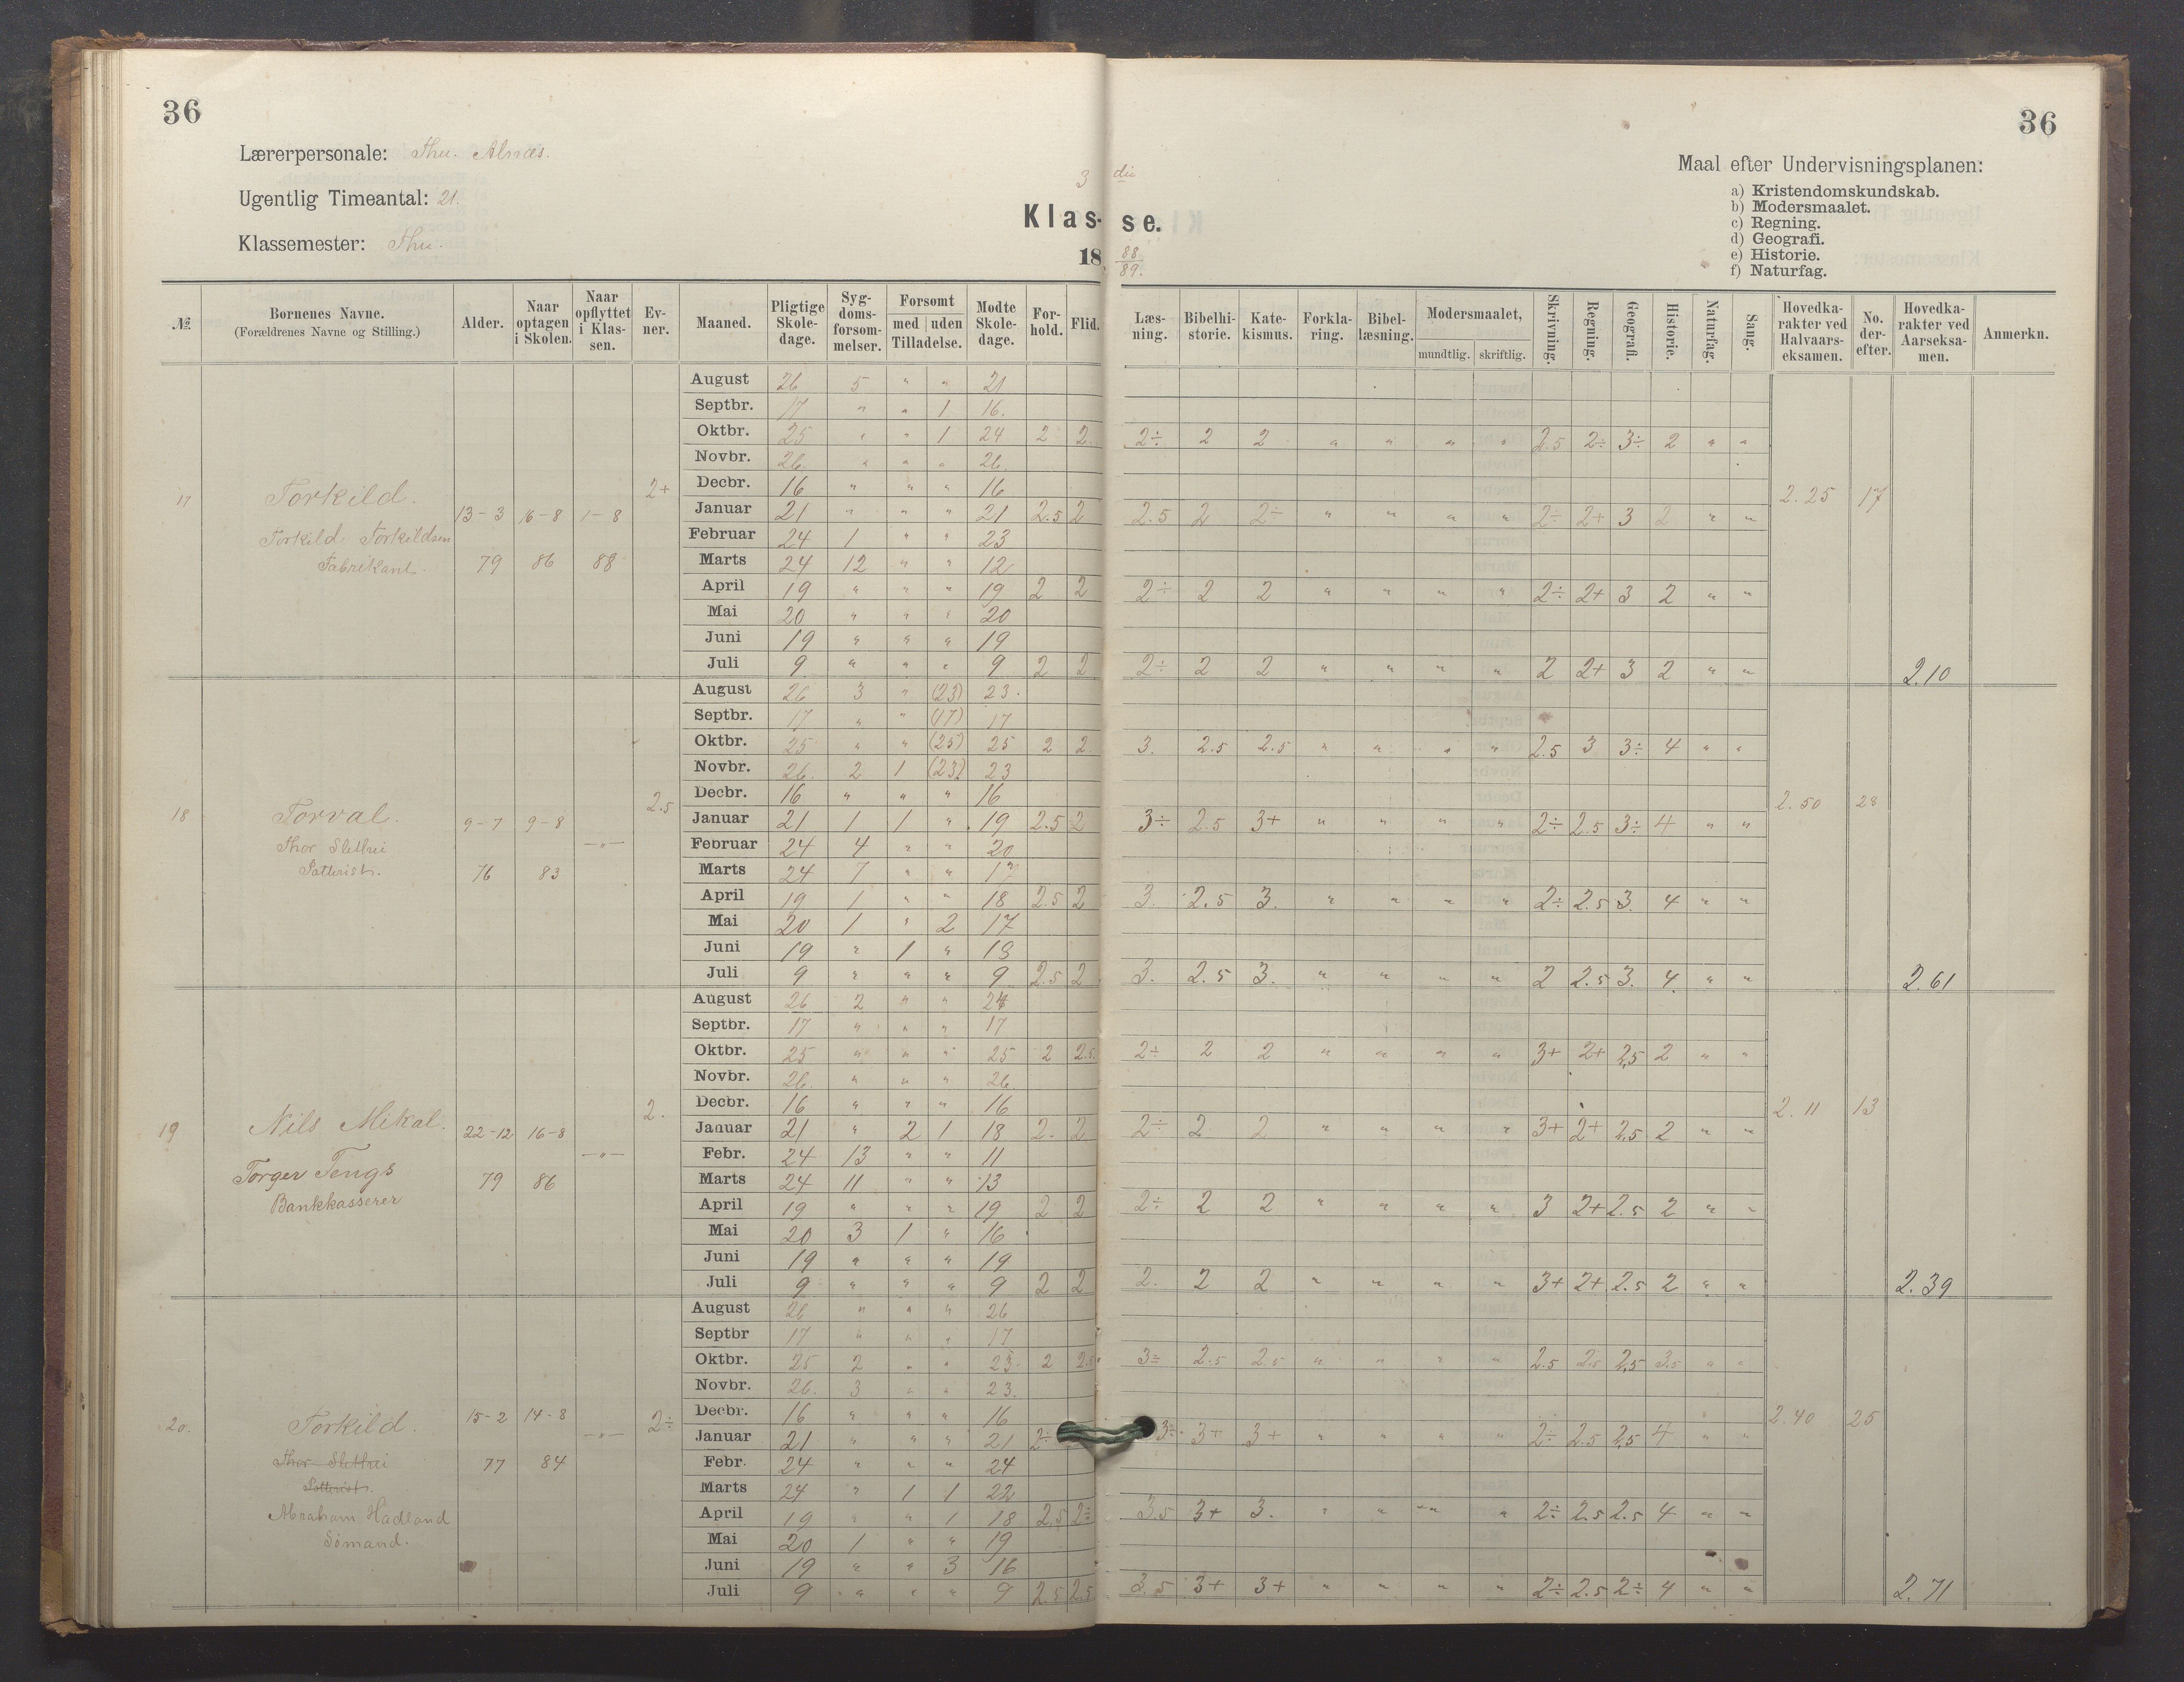 36
36
Lærerpersonale: Thu. Alnæs.
Ugentlig Timeantal: 21.
Klassemester: Thu.
3 die
Klas- se.
18 88/89.
Maal efter Undervisningsplanen:
a) Kristendomskundskab.
b) Modersmaalet.
c) Regning.
d) Geografi.
e) Historie.
f) Naturfag.
№ Børnenes Navne. (Forældrenes Navne og Stilling.) Alder. Naar optagen i Skolen. Naar opflyttet i Klassen. Evner. Maaned. Pligtige Skoledage. Sygdomsforsømmelser. Forsømt med uden Tilladelse. Mødte Skoledage. Forhold. Flid. Læsning. Bibelhistorie. Katekismus. Forklaring. Bibellæsning. Modersmaalet, mundtlig. skriftlig. Skrivning. Regning. Geografi. Historie. Naturfag. Sang. Hovedkarakter ved Halvaarseksamen. No. derefter. Hovedkarakter ved Aarseksamen. Anmerkn.
17 Torkild.
Torkild Torkildsen
Fabrikant.
13-3 79 16-8 86 1-8 88 2+
August 26 5 " " 21
Septbr. 17 " " 1 16.
Oktbr. 25 " " 1 24 2 2. 2÷ 2 2 " " " " 2.5 2÷ 3÷ 2 " "
Novbr. 26. " " " 26.
Decbr. 16 " " " 16 2.25 17
Januar 21 " " " 21 2.5 2 2.5 2 2÷ " " " " 2÷ 2+ 3 2 " "
Februar 24 1 " " 23
Marts 24 12 " " 12
April 19 " " " 19 2 2 2÷ 2 2 " " " " 2÷ 2+ 3 2 " "
Mai 20 " " " 20
Juni 19 " " " 19
Juli 9 " " " 9 2 2 2÷ 2 2 " " " " 2 2+ 3 2 " " 2.10
18 Torval.
Thor Slethei
Potterist.
9-7 76 9-8 83 —"— 2.5
August 26 3 " (23) 23.
Septbr. 17 " " (17) 17
Oktbr. 25 " " (25) 25 2 2. 3. 2.5 2.5 " " " " 2.5 3 3÷ 4 " "
Novbr. 26. 2 1 (23) 23
Decbr. 16 " " " 16 2.50 28
Januar 21 1 1 " 19 2.5 2 3÷ 2.5 3+ " " " " 2÷ 2.5 3÷ 4 " "
Februar 24 4 " " 20
Marts 24 7 " " 17
April 19 1 " " 18 2.5 2 3. 2.5 3. " " " " 2÷ 2.5 3. 4 " "
Mai 20 1 " 2 17
Juni 19 " 1 " 18
Juli 9 " " " 9 2.5 2 3. 2.5 3. " " " " 2 2.5 3. 4. " " 2.61
19 Nils Mikal.
Torger Tengs
Bankkasserer
22-12 79 16-8 86 —"— 2.
August 26 2 " " 24
Septbr. 17 " " " 17
Oktbr. 25 " " " 25 2 2.5. 2÷ 2 2 " " " " 3+ 2+ 2,5 2 " "
Novbr. 26. " " " 26
Decbr. 16 " " " 16 2.11 13
Januar 21 " 2 1 18 2. 2 2÷ 2 2 " " " " 3+ 2+ 2,5 2 " "
Febr. 24 13 " " 11
Marts 24 11 " " 13
April 19 " " " 19 2 2 2÷ 2 2 " " " " 3 2+ 2.5 2 " "
Mai 20 3 1 " 16
Juni 19 " " " 19
Juli 9 " " " 9 2 2 2. 2 2 " " " " 3+ 2+ 2.5 2 " " 2.39
20. Torkild.
Thor Slethei
Potterist.
Abraham Hadland
Sømand.
15-2 77 14-8 84 —"— 2÷
August 26 " " " 26
Septbr 17 " " " 17
Oktbr. 25 2 " " 23. 2 2.5 3÷ 2.5 2.5 " " " " 2.5 2.5 2,5 3.5 " "
Novbr. 26. 3 " " 23.
Decbr. 16 " " " 16 2.40 25
Januar 21 " " " 21 2÷ 3÷ 3+ 3+ " " " " 2÷ 2.5 2,5 4 " "
Febr. 24 " " " 24
Marts 24 " 1 1 22
April 19 " " 1 18 2.5 2÷ 3.5 3+ 3. " " " " 2÷ 2.5 2.5 4 " "
Mai 20 1 " " 19
Juni 19 " " 3 16
Juli 9 " " " 9 2.5 2.5 3.5 3+ 3+ " " " " 2÷ 2.5 2÷ 4 " " 2.71